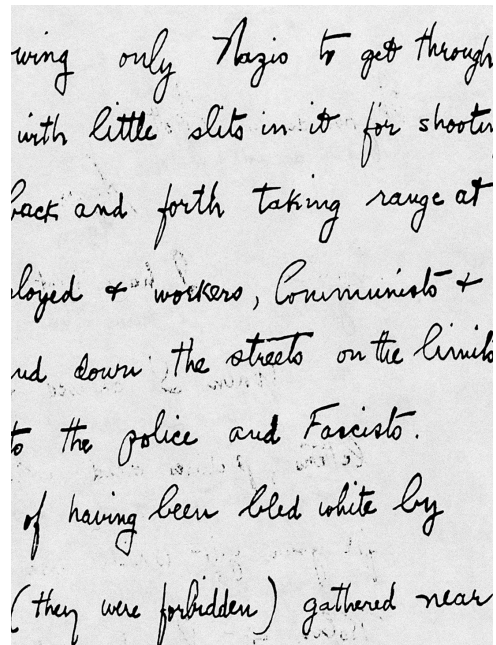 wing only Nazis to get through
with little slits in it for shootin
back and forth taking range at
loyed & workers, Communists +
nd down the streets on the limits
to the police and Fascists.
of having been bled white by
(they were forbidden) gathered near